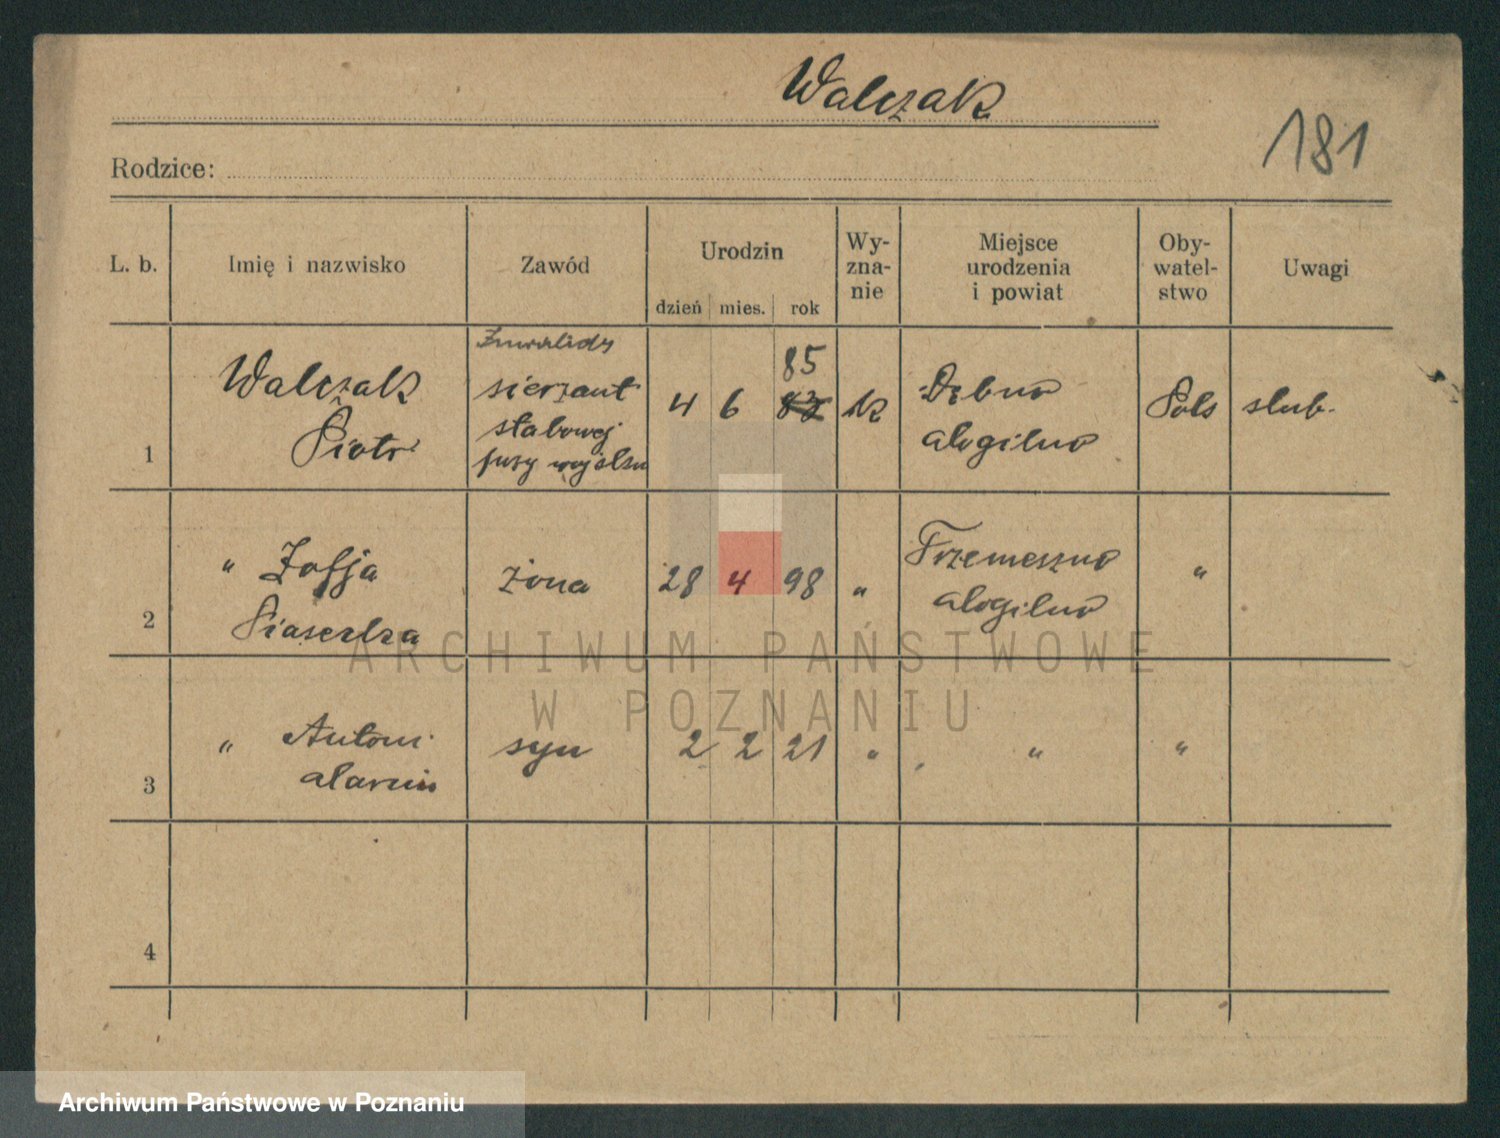 Walczak
181
Rodzice:
L. b. Imię i nazwisko Zawód Urodzin dzień mies. rok Wy-zna-nie Miejsce urodzenia i powiat Oby-watel-stwo Uwagi
Inwalida
85
Walczak sierżant 4 6 83 k Dębno Pols slub.
Piotr stabowej Mogilno
1 przy wojsku
" Zofja żona 28 4 98 " Trzemeszno "
2 Piasecka Mogilno
" Antoni syn 2 2 21 " " "
3 Marcin
4
ARCHIWUM PAŃSTWOWE
W POZNANIU
Archiwum Państwowe w Poznaniu